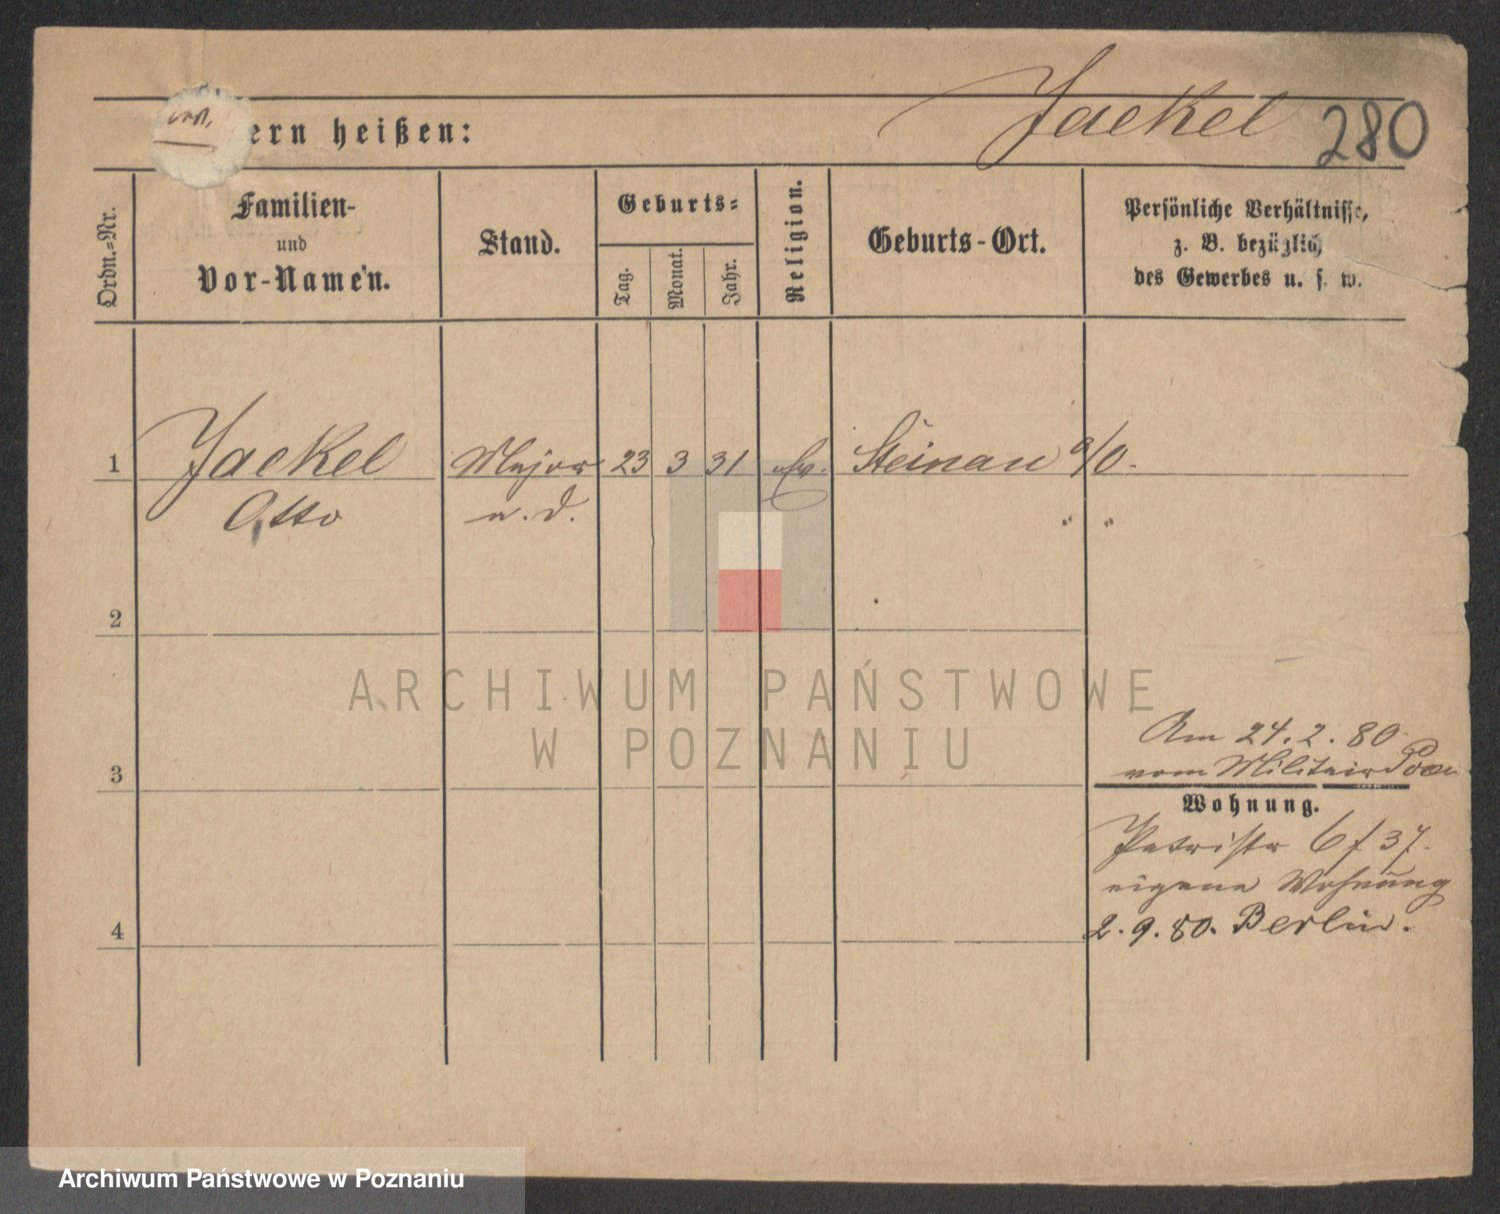 ern heißen:
Jaekel
280
Ordn.-Nr.
Familien-
und
Vor-Namen.
Stand.
Geburts-
Tag.
Monat.
Jahr.
Religion.
Geburts-Ort.
Persönliche Verhältnisse,
z. B. bezüglich
des Gewerbes u. s. w.
1 Jaekel Major 23 3 31 ev. Steinau a/O.
Otto a. D. " "
2
3
4
Am 24. 2. 80
vom Militair
Wohnung.
Patristr 6 / 37.
eigene Wohnung
2. 9. 80. Berlin.
ARCHIWUM PAŃSTWOWE
W POZNANIU
Archiwum Państwowe w Poznaniu